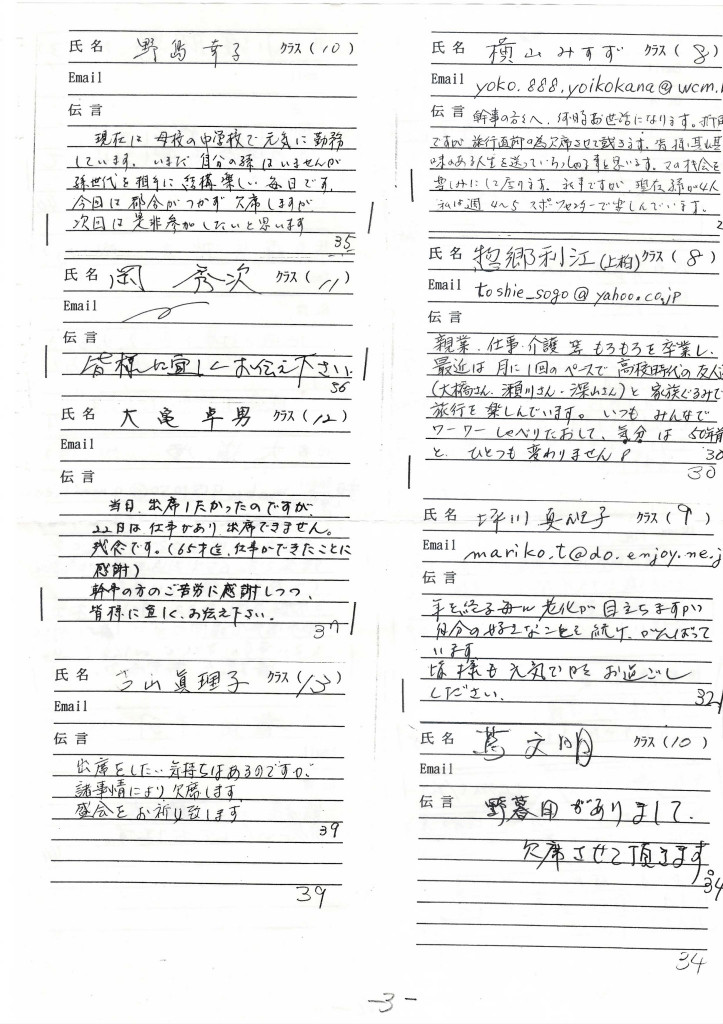 氏名 野島 幸子 クラス(10)
Email
伝言
現在は 母校の中学校で元気に勤務
しています。いまだ自分の孫はいませんが
孫世代を相手に結構楽しい毎日です。
今回は都合がつかず欠席しますが
次回は是非参加したいと思います
35
氏名 岡 秀次 クラス(11)
Email
伝言
皆様に宜しくお伝え下さい。
36
氏名 大亀 卓男 クラス(12)
Email
伝言
当日、出席したかったのですが、
22日は仕事があり出席できません。
残念です。(65才迄、仕事ができたことに
感謝)
幹事の方のご苦労に感謝しつつ、
皆様に宜しく、お伝え下さい。
37
氏名 山 眞理子 クラス(13)
Email
伝言
出席をしたい気持ちはあるのですが、
諸事情により欠席します
盛会をお祈り致します
39
39
氏名 横山 みすず クラス(8)
Email yoko.888.yoikokana@wcm.
伝言 幹事の方々へ、何時お世話になります。
ですが 旅行直前の為欠席させて戴きます。皆様
味のある人生を送っていらっしゃる事と思います。又の機会を
楽しみにして居ります。 現在孫が4人
私は週4〜5 スポーツセンターで楽しんでいます。
氏名 惣郷利江(上柏) クラス(8)
Email toshie_sogo@yahoo.co.jp
伝言
親業・仕事・介護 等 もろもろを卒業し、
最近は 月に1回のペースで 高校時代の友人
(大橋さん・瀬川さん・深山さん)と 家族ぐるみで
旅行を楽しんでいます。いつも みんなで
ワーワーしゃべりたおして、気分は 50年前
と、ひとつも変わりません
30
30
氏名 坪川 真理子 クラス(9)
Email mariko.t@do.enjoy.ne.j
伝言
年を経る毎に老化が目立ちますが
自分の好きなことを続け、がんばって
います。
皆様も元気で お過ごし
ください。
32
氏名 蔦 文明 クラス(10)
Email
伝言
野暮用がありまして、
欠席させて頂きます。
34
34
-3-